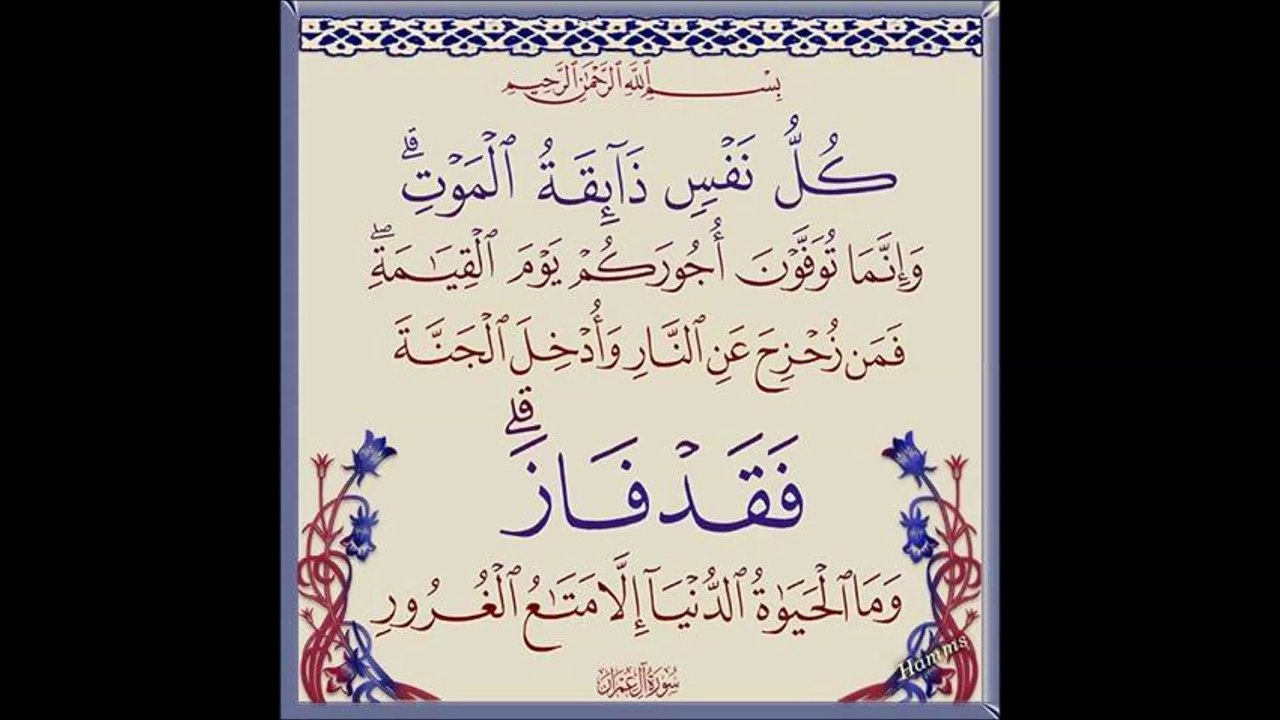 بِسْمِ اللَّهِ الرَّحْمَٰنِ الرَّحِيمِ
كُلُّ نَفْسٍ ذَآئِقَةُ ٱلْمَوْتِ ۗ
وَإِنَّمَا تُوَفَّوْنَ أُجُورَكُمْ يَوْمَ ٱلْقِيَٰمَةِ ۖ
فَمَن زُحْزِحَ عَنِ ٱلنَّارِ وَأُدْخِلَ ٱلْجَنَّةَ
فَقَدْ فَازَ ۗ
وَمَا ٱلْحَيَوٰةُ ٱلدُّنْيَآ إِلَّا مَتَٰعُ ٱلْغُرُورِ
سُورَةُ آلِ عِمْرَان
Hamms